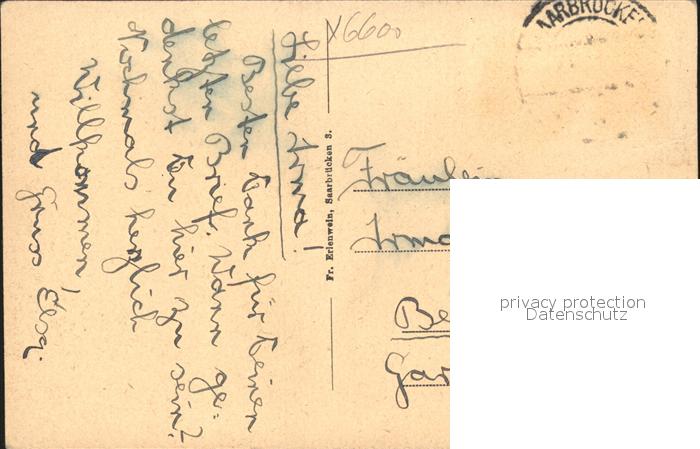 X6600
SAARBRÜCKEN
Liebe Irma!
Besten Dank für Deinen
letzten Brief. Wann ge-
denkst Du hier zu sein?
Nochmals herzlich
Willkommen!
und Gruss
Fr. Erlenwein, Saarbrücken 3.
Fräulein
Irma
Be
Gar
privacy protection
Datenschutz